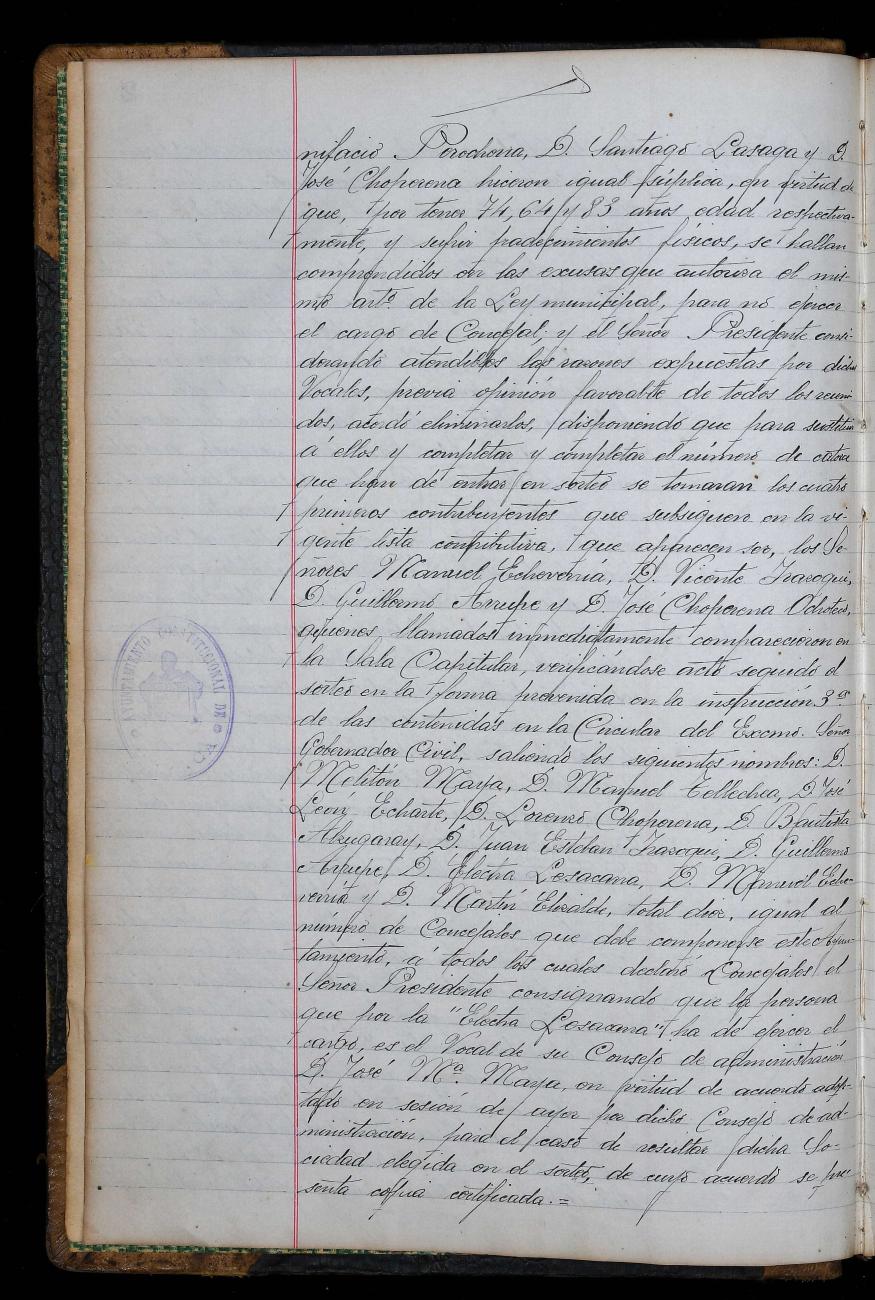 nifacio Perochena, D. Santiago Lasaga y D.
José Choperena hiceron igual súplica, en virtud de
que, por tener 74, 64 y 83 años edad respectiva-
mente, y sufrir padecimientos físicos, se hallan
comprendidos en las excusas que autoriza el mis-
mo artº. de la Ley municipal, para no ejercer
el cargo de Concejal; y el Señor Presidente consi-
derando atendibles las razones expuestas por dichos
Vocales, previa opinión favorable de todos los reuni-
dos, acordó eliminarlos, disponiendo que para sustituir
á ellos y completar y completar el número de catorce
que han de entrar en sorteo se tomaran los cuatro
primeros contribuyentes que subsiguen en la vi-
gente lista contributiva, que aparecen ser, los Se-
ñores Manuel Echeverría, D. Vicente Irazoqui,
D. Guillermo Arrupe y D. José Choperena Ochoteco,
quienes llamados inmediatamente comparecieron en
la Sala Capitular, verificándose acto seguido el
sorteo en la forma prevenida en la instrucción 3ª
de las contenidas en la Circular del Excmo. Señor
Gobernador Civil, saliendo los siguientes nombres: D.
Melitón Maya, D. Manuel Tellechea, D. José
León Echarte, D. Lorenzo Choperena, D. Bautista
Alzugaray, D. Juan Esteban Irazoqui, D. Guillermo
Arrupe, D. Electra Lesacana, D. Manuel Eche-
verría y D. Martín Elizalde, total diez, igual al
número de Concejales que debe componerse este Ayun-
tamiento, á todos los cuales declaró Concejales el
Señor Presidente consignando que la persona
que por la "Electra Lesacana" ha de ejercer el
cargo, es el Vocal de su Consejo de administración
D. José Mª. Maya, en virtud de acuerdo adop-
tado en sesión de ayer por dicho Consejo de ad-
ministración, para el caso de resultar dicha So-
ciedad elegida en el sorteo, de cuyo acuerdo se pre-
senta copia certificada.=
AYUNTAMIENTO CONSTITUCIONAL DE